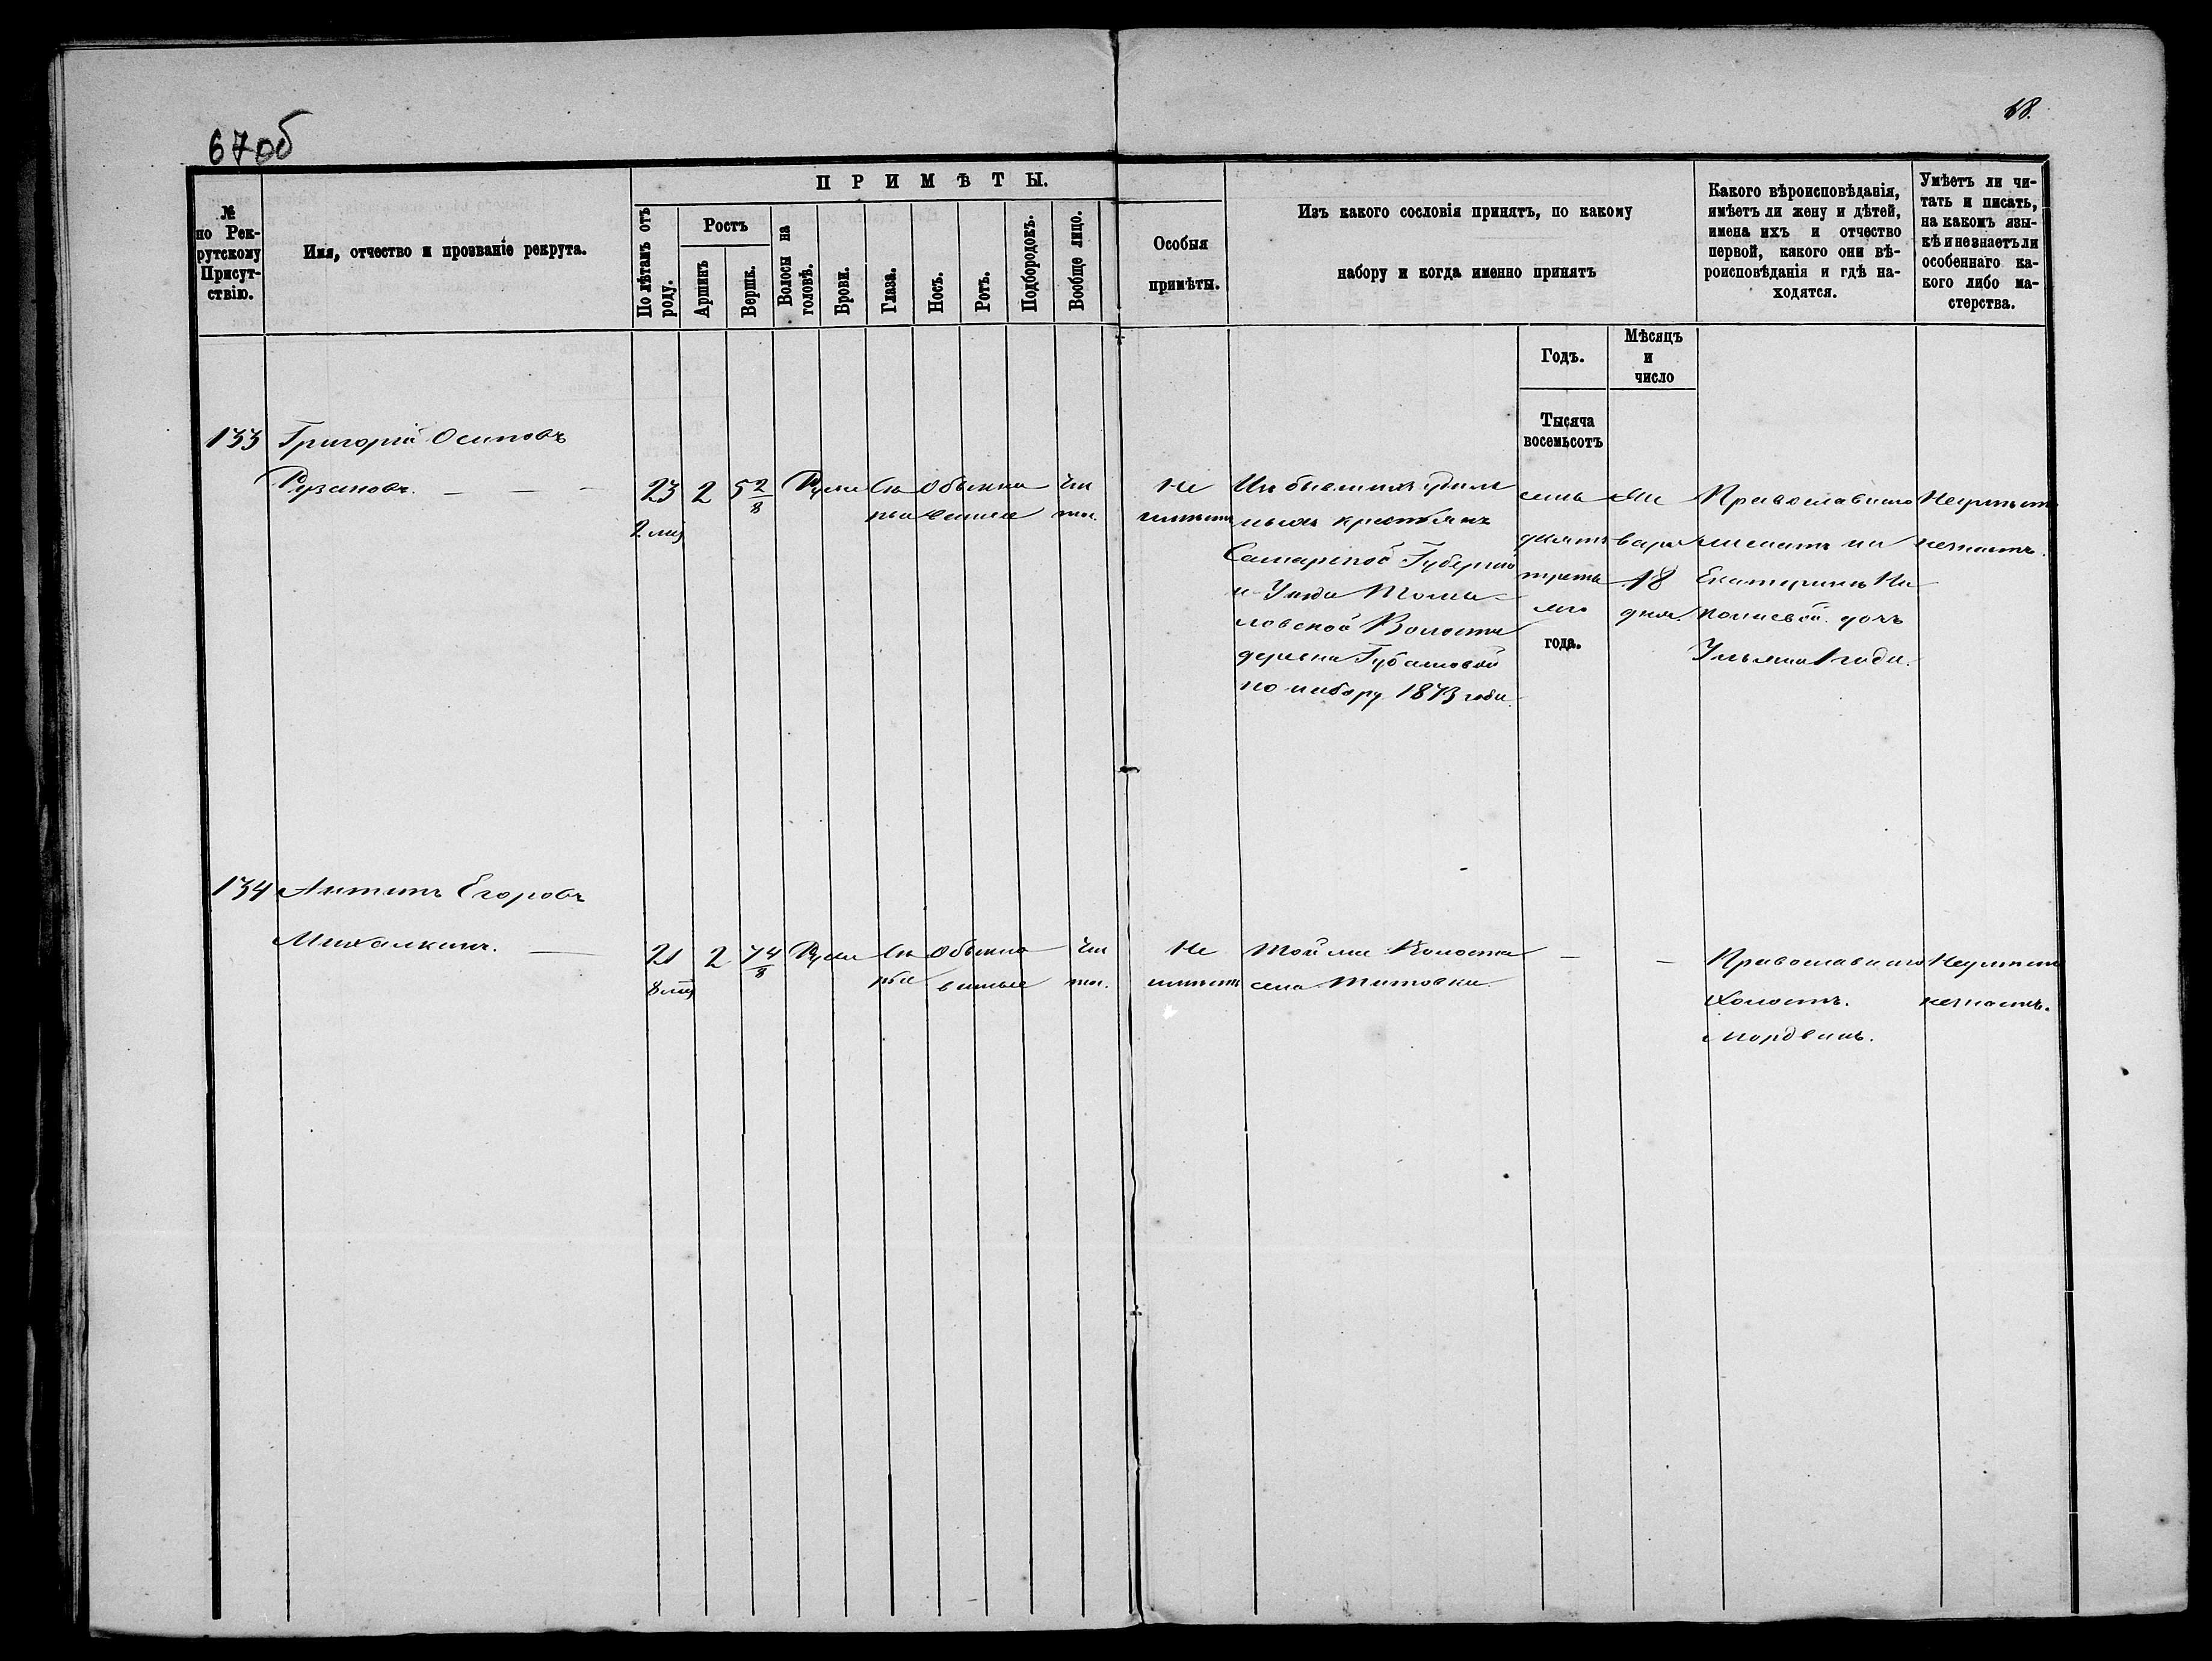 67об
68.
№
по Рек-
рутскому
Присут-
ствію.
Имя, отчество и прозваніе рекрута.
ПРИМѢТЫ.
По лѣтамъ отъ
роду.
Ростъ
Аршинъ
Вершк.
Волосы на
головѣ.
Брови.
Глаза.
Носъ.
Ротъ.
Подбородокъ.
Вообще лицо.
Особыя
примѣты.
Изъ какого сословія принятъ, по какому
набору и когда именно принятъ
Годъ.
Мѣсяцъ
и
число
Какого вѣроисповѣданія,
имѣетъ ли жену и дѣтей,
имена ихъ и отчество
первой, какого они вѣ-
роисповѣданія и гдѣ на-
ходятся.
Умѣетъ ли чи-
тать и писать,
на какомъ язы-
кѣ и не знаетъ ли
особеннаго ка-
кого либо ма-
стерства.
Тысяча
восемьсотъ
133 Григорій Осиповъ
Рузановъ.
23 2 5 2/8 Русые Сѣ Обыкно Чи
2 мѣс рые венные
Не
имѣетъ
Изъ бывшихъ удѣль
ныхъ крестьянъ
Самарской Губерніи
и Уѣзда Томы=
ловской Волости
деревни Губашевой
по набору 1873 года.
семь
десятъ
треть
яго
года.
Ян
варя
18
дня.
Православнаго
женатъ на
Екатеринѣ Ни
коновой дочь
Ульяна 1 года.
Неумѣетъ
незнаетъ.
134 Антипъ Егоровъ
Михалкинъ.
21 2 7 4/8 Русые Сѣ Обыкно Чи
8 мѣс рые венные
Не
имѣетъ
Той же Волости
села Титовки.
Православнаго
Холостъ.
мордвинъ.
Неумѣетъ
незнаетъ.